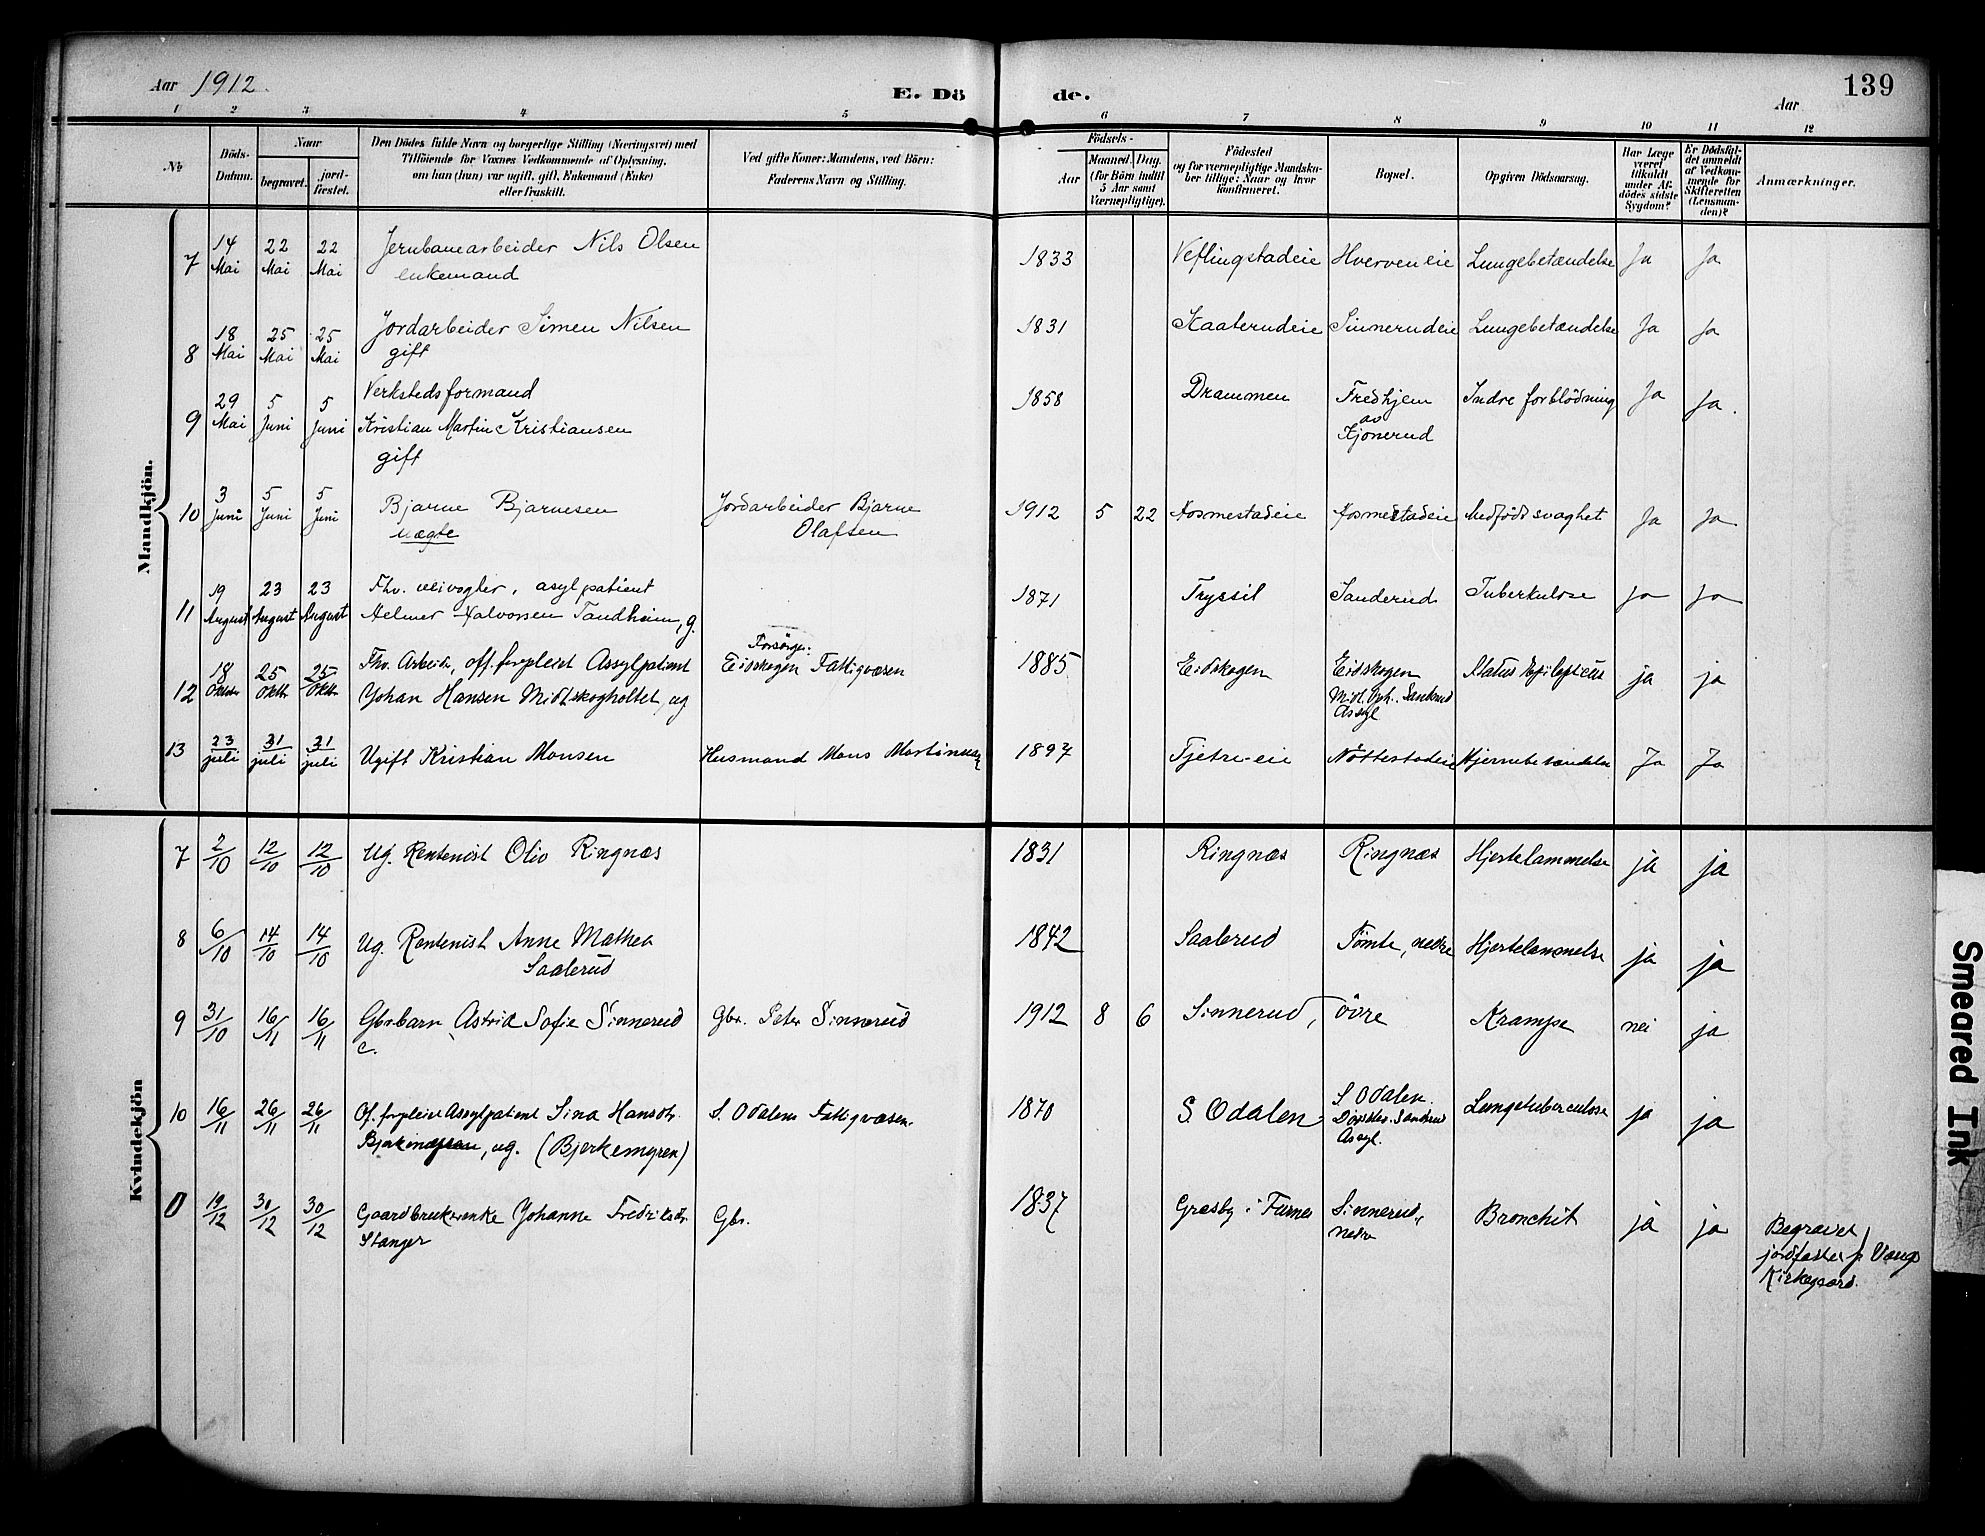 Aar 1912.
E. Dö de.
Aar
139
1 2 3 4 5 6 7 8 9 10 11 12
No
Döds-Datum.
Naar
begravet.
jord-fæstet.
Den Dödes fulde Navn og borgerlige Stilling (Næringsvei) med
Tilföiende for Voxnes Vedkommende af Oplysning,
om han (hun) var ugift, gift, Enkemand (Enke)
eller fraskilt.
Ved gifte Koner: Mandens, ved Börn:
Faderens Navn og Stilling.
Födsels-
Aar
Maaned. Dag.
(for Börn indtil
5 Aar samt
Værnepligtige).
Födested
og for værnepligtige Mandska-
ber tillige: Naar og hvor
konfirmeret.
Bopæl.
Opgiven Dödsaarsag.
Har Læge
været
tilkaldt
under Af-
dödes sidste
Sygdom?
Er Dödsfal-
det anmeldt
af Vedkom-
mende for
Skifteretten
(Lensman-
den)?
Anmærkninger.
Mandkjön.
7 14 Mai 22 Mai 22 Mai Jernbanearbeider Nils Olsen 1833 Veflingstadeie Hverveneie Lungebetændelse Ja Ja
enkemand
8 18 Mai 25 Mai 25 Mai Jordarbeider Simen Nilsen 1831 Kaaterudeie Sinnerudeie Lungebetændelse Ja Ja
gift
9 29 Mai 5 Juni 5 Juni Verkstedsformand 1858 Drammen Fredhjem Indre forblödning Ja Ja.
Kristian Martin Kristiansen av Kjonerud
gift
10 3 Juni 5 Juni 5 Juni Bjarne Bjarnesen Jordarbeider Bjarne 1912 5 22 Hosmestadeie Hosmestadeie Medfödt svaghet Ja Ja
uægte Olafsen
11 19 August 23 August 23 August Fhv. veivogter, asylpatient 1871 Trysil Sanderud Tuberkulose Ja Ja
Helmer Halvorsen Tandheim, g.
12 18 Oktober 25 Oktb. 25 Oktb. Fhv. Arbeid., off. forpleiet Assylpatient Forsörger: 1885 Eidskogen Eidskogen Status Epilepticus ja ja
Johan Hansen Midtskogholtet, ug Eidskogen Fattigvæsen Midl. Oph. Sanderud
Assyl
13 23 juli 31 juli 31 juli Ugift Kristian Monsen Husmand Mons Martinusen 1897 Tjetre-eie Nöttestadeie Hjernebetændelse Ja Ja
Kvindekjön
7 2/10 12/10 12/10 Ug. Rentenist Oliv Ringnæs 1831 Ringnæs Ringnæs Hjertelammelse ja ja
8 6/10 14/10 14/10 Ug. Rentenist Anne Mathea 1842 Saalerud Tömte, nedre Hjertelammelse ja ja
Saalerud
9 31/10 16/11 16/11 Gbr.barn Astrid Sofie Sinnerud Gbr. Peter Sinnerud 1912 8 6 Sinnerud, övre Krampe nei ja
e.
10 16/11 26/11 26/11 Of. forpleiet Assylpatient Sina Hansdtr. S. Odalens Fattigvæsen. 1870 S. Odalen S. Odalen. Lungetuberculose ja ja
ug. (Bjerkemyren) Sanderud
Assyl.
0 19/12 30/12 30/12 Gaardbrukerenke Johanne Fredriksdtr. Gbr. 1837 Græsby i Furnes Sinnerud, Bronchit ja ja
Stanger nedre
Begravet /
jordfæstet p. Vangs
Kirkegaard.
Smeared Ink